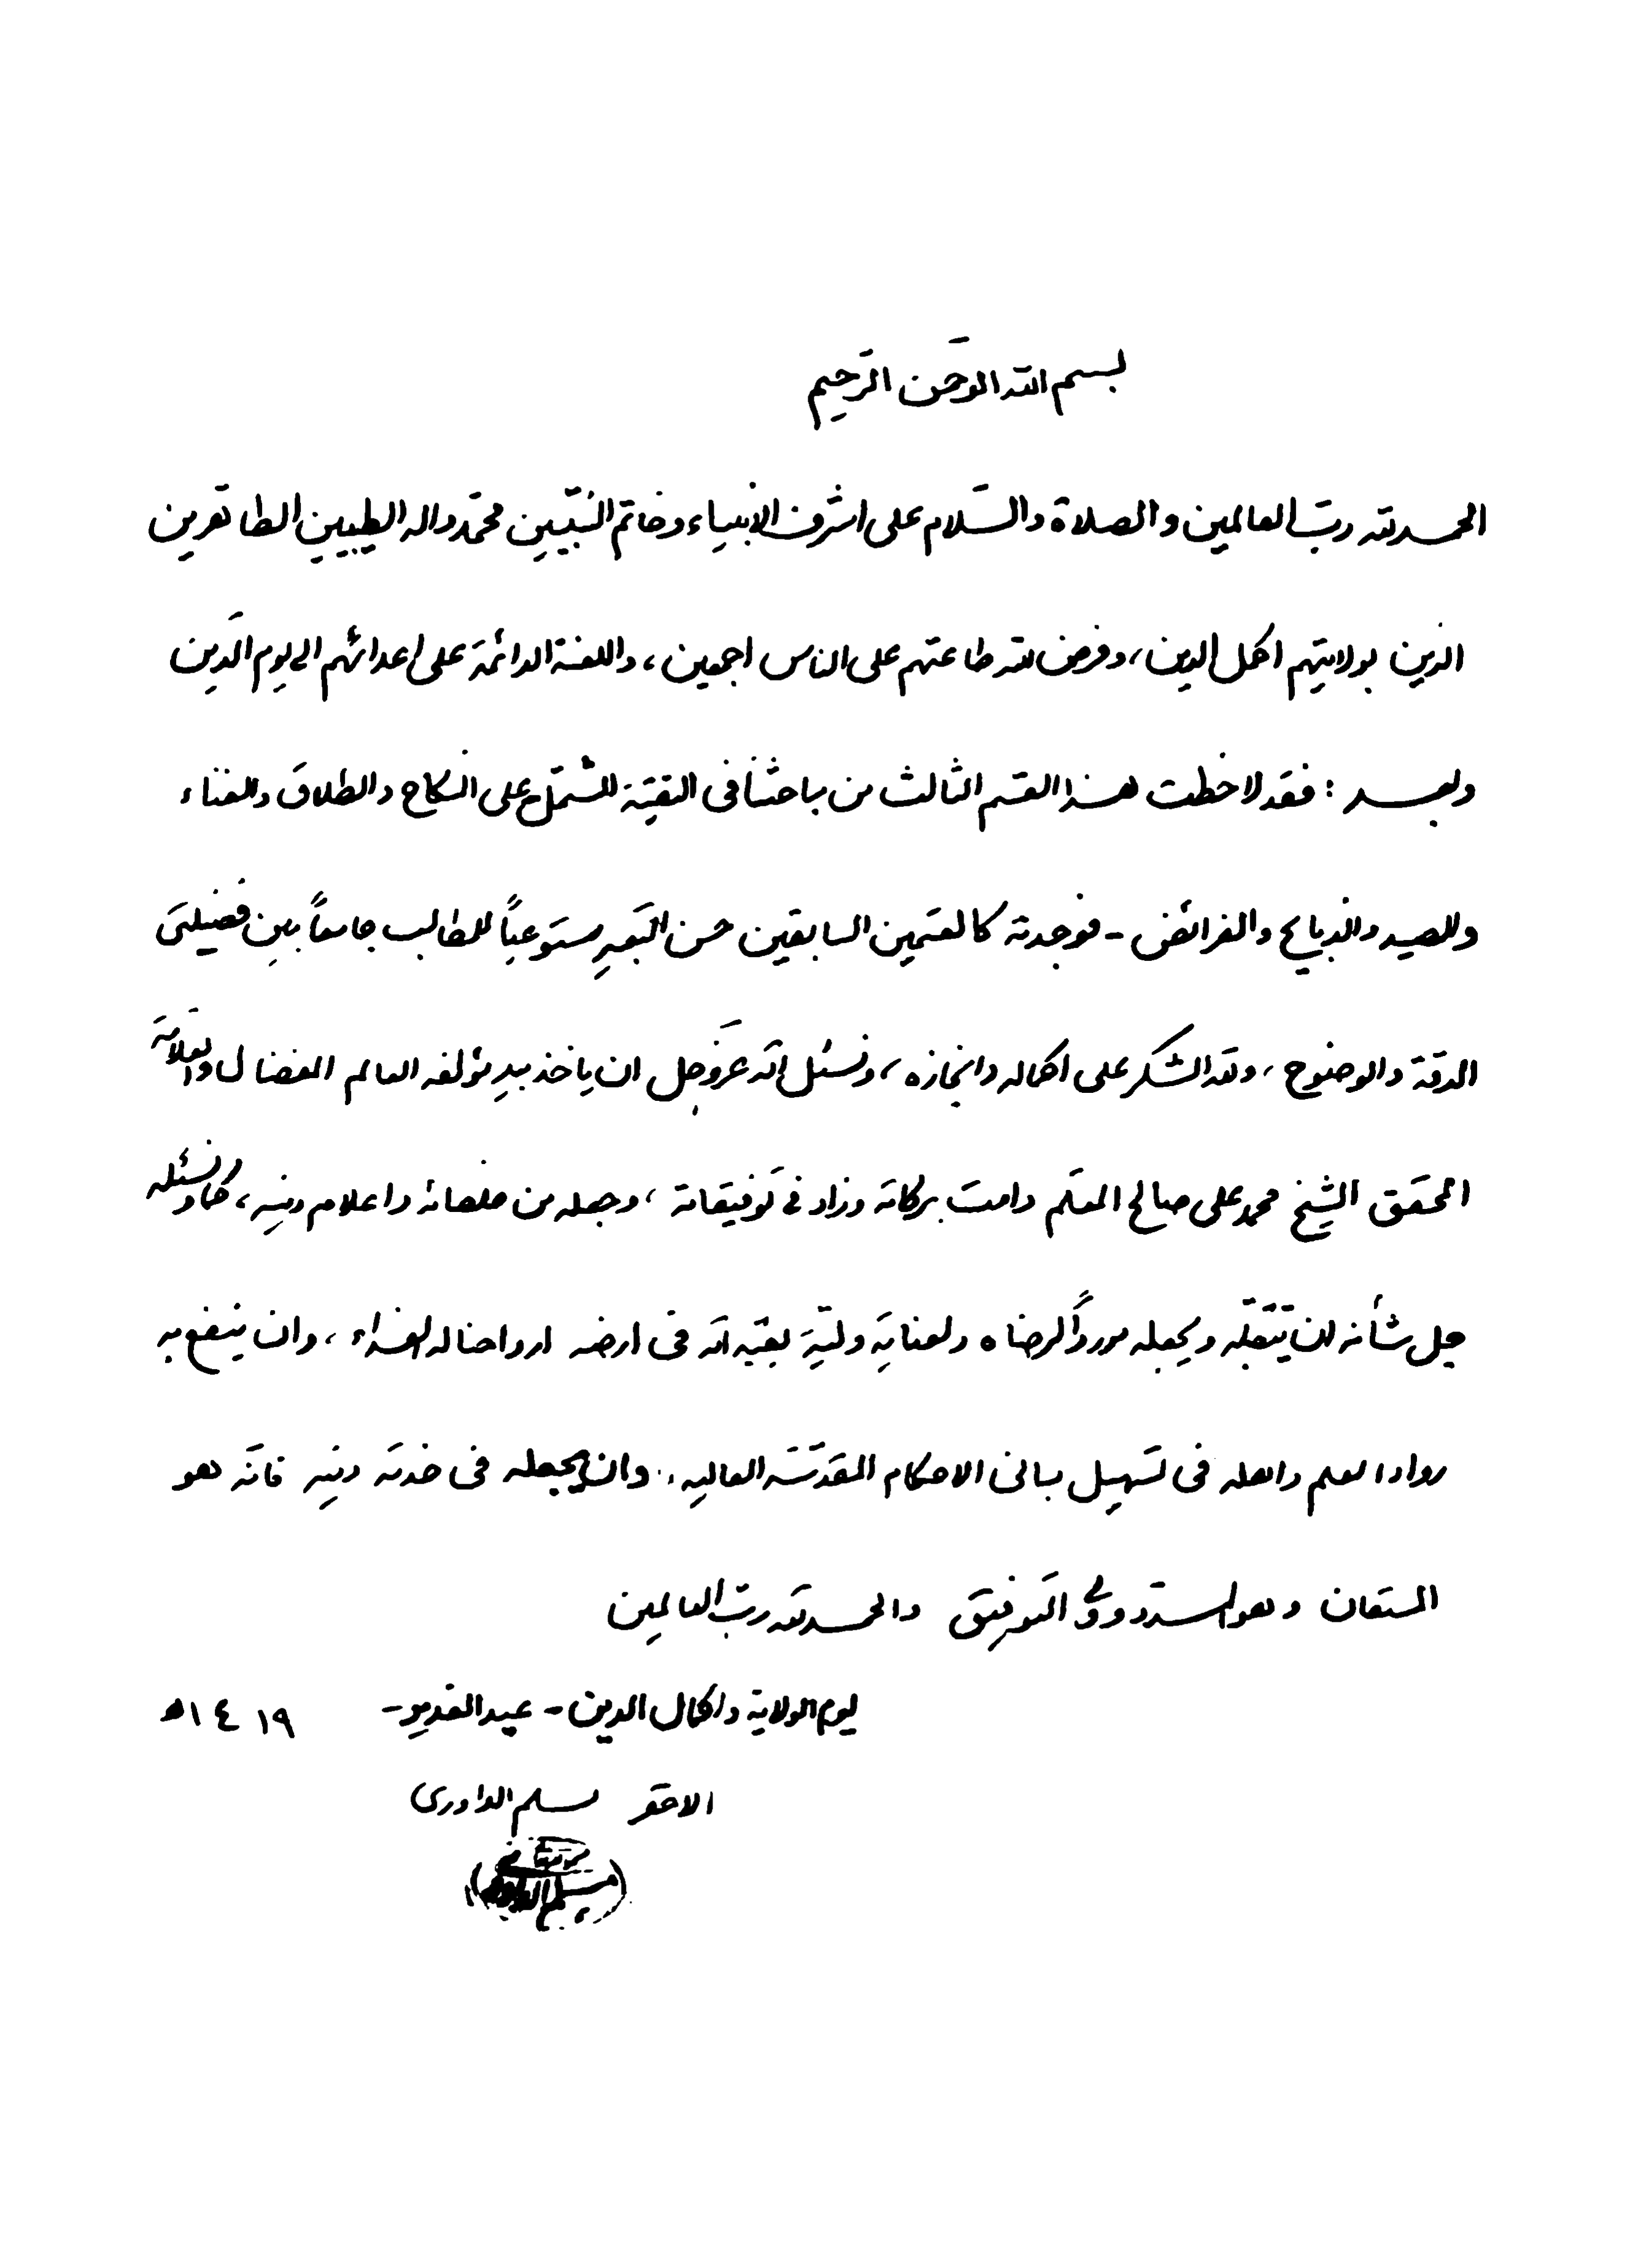 بسم الله الرحمن الرحيم
الحمد لله رب العالمين والصلاة والسلام على اشرف الانبياء وخاتم النبيين محمد واله الطيبين الطاهرين
الذين بولايتهم اكمل الدين، وفرض الله طاعتهم على الناس اجمعين، واللعنة الدائمة على اعدائهم الى يوم الدين
وبعد : فقد لاحظت هذا القسم الثالث من مباحثنا فى التقية المشتمل على النكاح والطلاق والقضاء
والصيد والذبايح والفرائض - فوجدته كالقسمين السابقين حسن التعبير مستوعباً للمطالب جامعاً بين فضيلتى
الدقة والوضوح، ولله الشكر على اكماله وانجازه، ونسئل الله عز وجل ان ياخذ بيد مؤلفه العالم المفضال والعلامة
المحقق الشيخ محمد على صالح المعلم دامت بركاته وزاد فى توفيقاته، وجعله من فلصائه واعلام دينه، كما ونسئله
جل شأنه ان يتقبله ويجعله مورداً لرضاه ولعناية وليه بقية الله فى ارضه ارواحنا له الفداء، وان ينفع به
رواد العلم واهله فى تسهيل مبانى الاحكام المقدسة العالية، وان يجعله فى خدمة دينه فانه هو
المستعان وهو المسدد وولى التوفيق والحمد لله رب العالمين
يوم الولاية واكمال الدين - عيد الغدير - ١٤١٩ه
الاحقر مسلم الداورى
مسلم الداورى